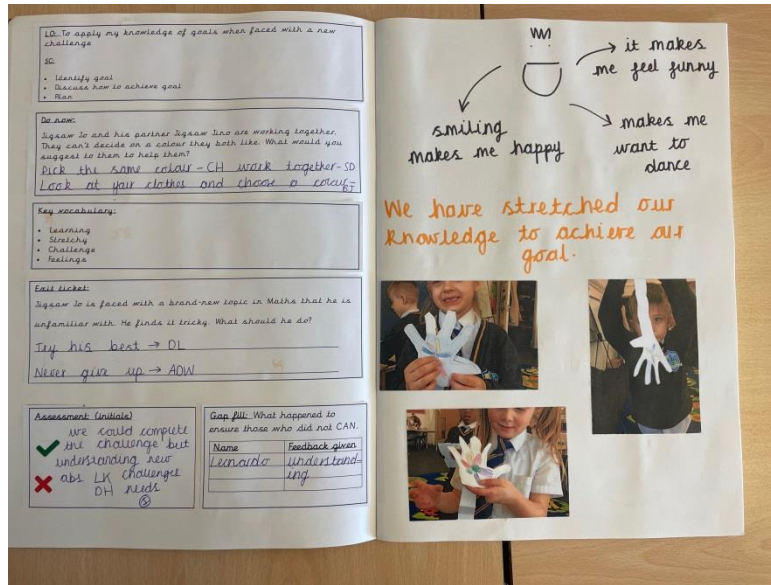 LO: To apply my knowledge of goals when faced with a new
challenge
SC:
• Identify goal
• Discuss how to achieve goal
• Plan
Do now:
Jigsaw Jo and his partner Jigsaw Jino are working together.
They can't decide on a colour they both like. What would you
suggest to them to help them?
Pick the same colour - CH work together - SD
Look at your clothes and choose a colour BJ
Key vocabulary:
• Learning
• Stretchy
• Challenge
• Feelings
Exit ticket:
Jigsaw Jo is faced with a brand-new topic in Maths that he is
unfamiliar with. He finds it tricky. What should he do?
Try his best → DL
Never give up → ADW
Assessment (initials)
we could complete
the challenge but
understanding new
abs LK challenges
DH needs
S
Gap fill: What happened to
ensure those who did not CAN.
Name Feedback given
Leonardo understand-
ing
it makes
me feel funny
smiling
makes me happy
makes me
want to
dance
We have stretched our
knowledge to achieve our
goal.